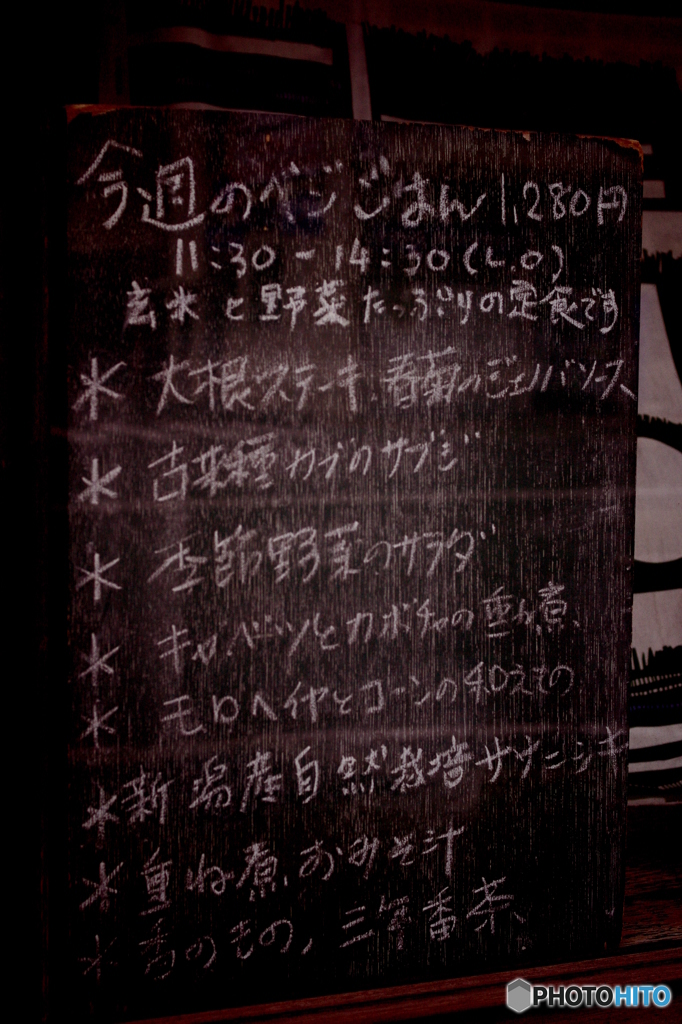 今週のベジごはん 1,280円
11:30-14:30(L.O)
玄米と野菜たっぷりの定食です
* 大根ステーキ、春菊のジェノバソース
* 古来種カブのサブジ
* 季節野菜のサラダ
* キャベツとカボチャの重ね煮
* モロヘイヤとコーンの和えもの
* 新潟産自然栽培ササニシキ
* 重ね煮おみそ汁
* 香のもの、三年番茶
PHOTOHITO